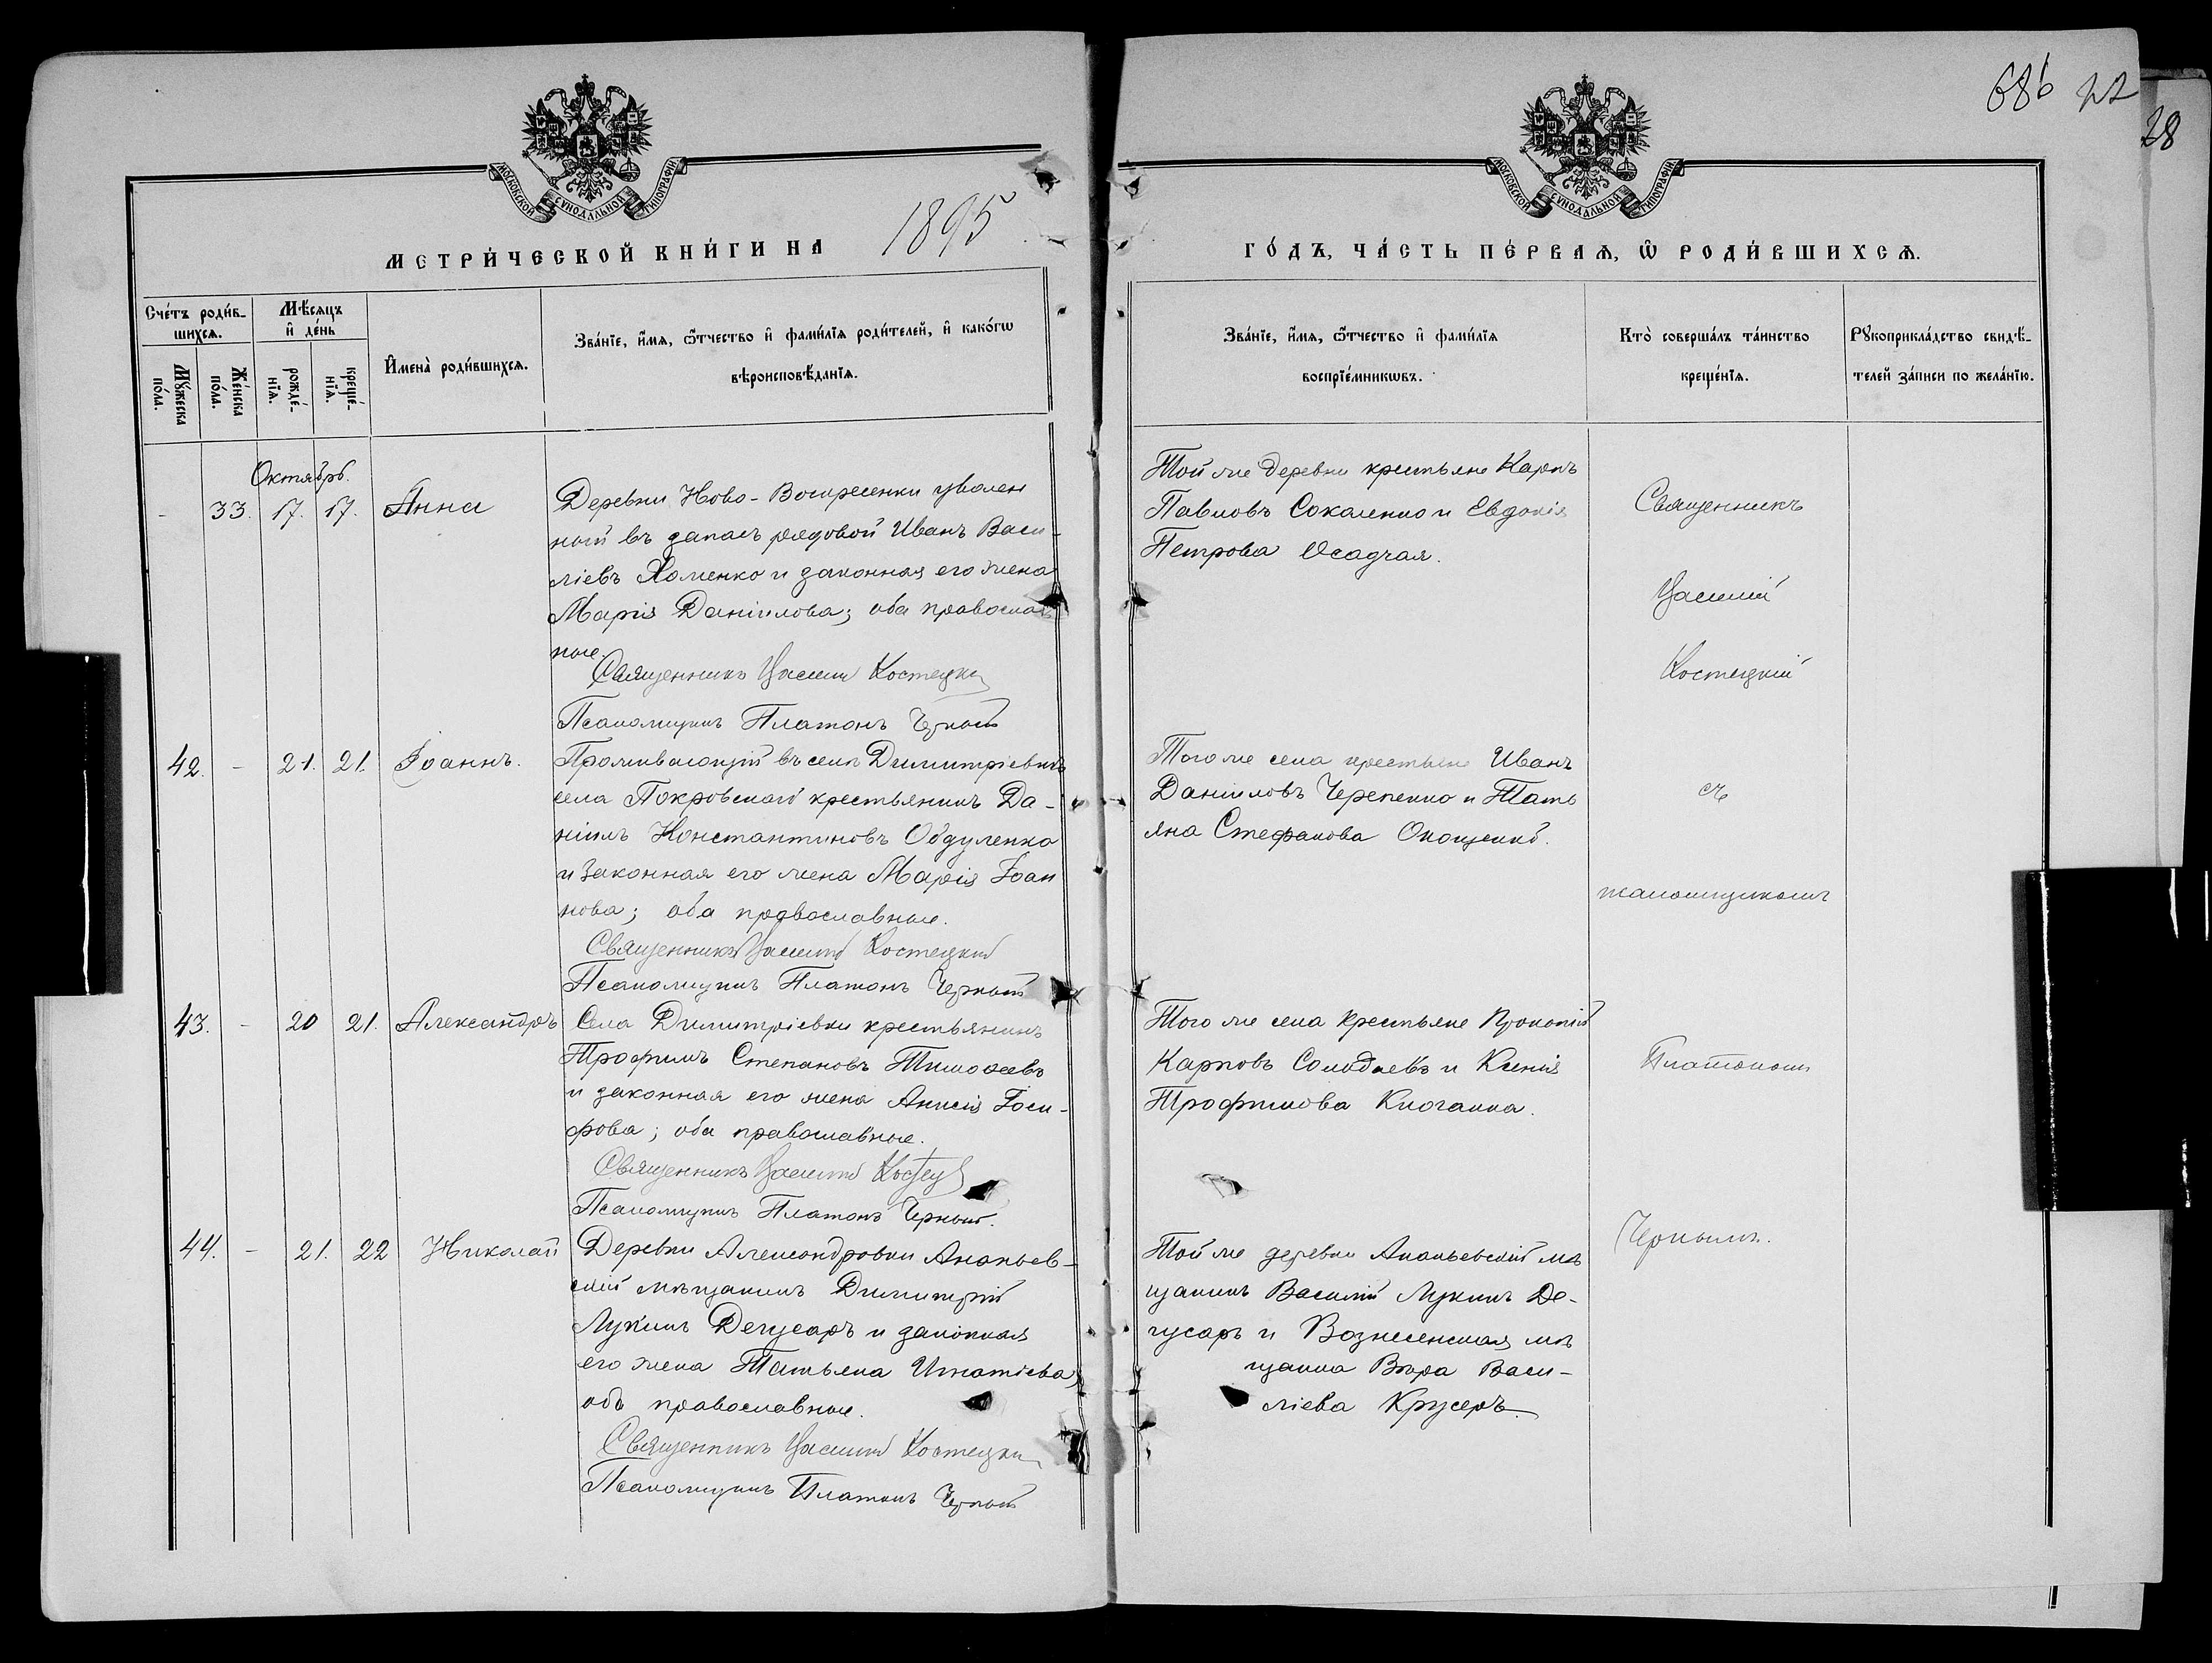 686 22
28
МОСКОВСКОЙ СѴНОДАЛЬНОЙ ТИПОГРАФІИ
МОСКОВСКОЙ СѴНОДАЛЬНОЙ ТИПОГРАФІИ
МЕТРИ́ЧЕСКОЙ КНИ́ГИ НА 1895
ГО́ДЪ, ЧА́СТЬ ПЕ́РВАѦ, Ѿ РОДИ́ВШИХСѦ.
Сче́тъ роди́в-
шихсѧ.
Мꙋ́жеска по́ла.
Же́нска по́ла.
Мѣ́сѧцъ и҆ де́нь
рожде́-нїѧ.
креще́-нїѧ.
И҆мена̀ роди́вшихсѧ.
Зва́нїе, и҆́мѧ, ѻ҆́тчество и҆ фами́лїѧ роди́телей, и҆ како́гѡ
вѣроисповѣ́данїѧ.
Зва́нїе, и҆́мѧ, ѻ҆́тчество и҆ фами́лїѧ
воспрїе́мникѡвъ.
Кто̀ соверша́лъ та́инство
креще́нїѧ.
Рꙋкоприкла́дство свидѣ́-
телей за́писи по жела́нїю.
Октябрь.
- 33. 17. 17. Анна
Деревни Ново-Воскресенки уволен
ный въ запасъ рядовой Иванъ Васи-
ліевъ Хоменко и законная его жена
Марія Даніилова; оба православ
ные.
Священникъ Василій Костецкій
Псаломщикъ Платонъ Черный
Той же деревни крестьяне Карпъ
Павловъ Сокаленко и Евдокія
Петрова Осадчая.
Священникъ
Василій
Костецкій
съ
псаломщикомъ
Платономъ
Чернымъ.
42. - 21. 21. Іоаннъ.
Проживающій въ селѣ Димитріевкѣ
села Покровскаго крестьянинъ Да-
ніилъ Константиновъ Обдуленко
и законная его жена Марія Іоан
нова; оба православные.
Священникъ Василій Костецкій
Псаломщикъ Платонъ Черный
Того же села крестьяне Иванъ
Даніиловъ Черепенко и Тать
яна Стефанова Онощенко.
43. - 20 21. Александръ
Села Димитріевки крестьянинъ
Трофимъ Степановъ Тимоѳеевъ
и законная его жена Анисія Іоси-
фова; оба православные.
Священникъ Василій Костец
Псаломщикъ Платонъ Черный.
Того же села крестьяне Прокопій
Карповъ Солодаевъ и Ксенія
Трофимова
44. - 21. 22 Николай
Деревни Александровки Ананьев-
скій мѣщанинъ Димитрій
Лукинъ Дегусаръ и законная
его жена Татьяна Игнатіева;
оба православные.
Священникъ Василій Костецкій
Псаломщикъ Платонъ Черный
Той же деревни Ананьевскій мѣ
щанинъ Василій Лукинъ Де-
гусаръ и Вознесенская мѣ
щанка Вѣра Васи-
ліева Крусеръ.